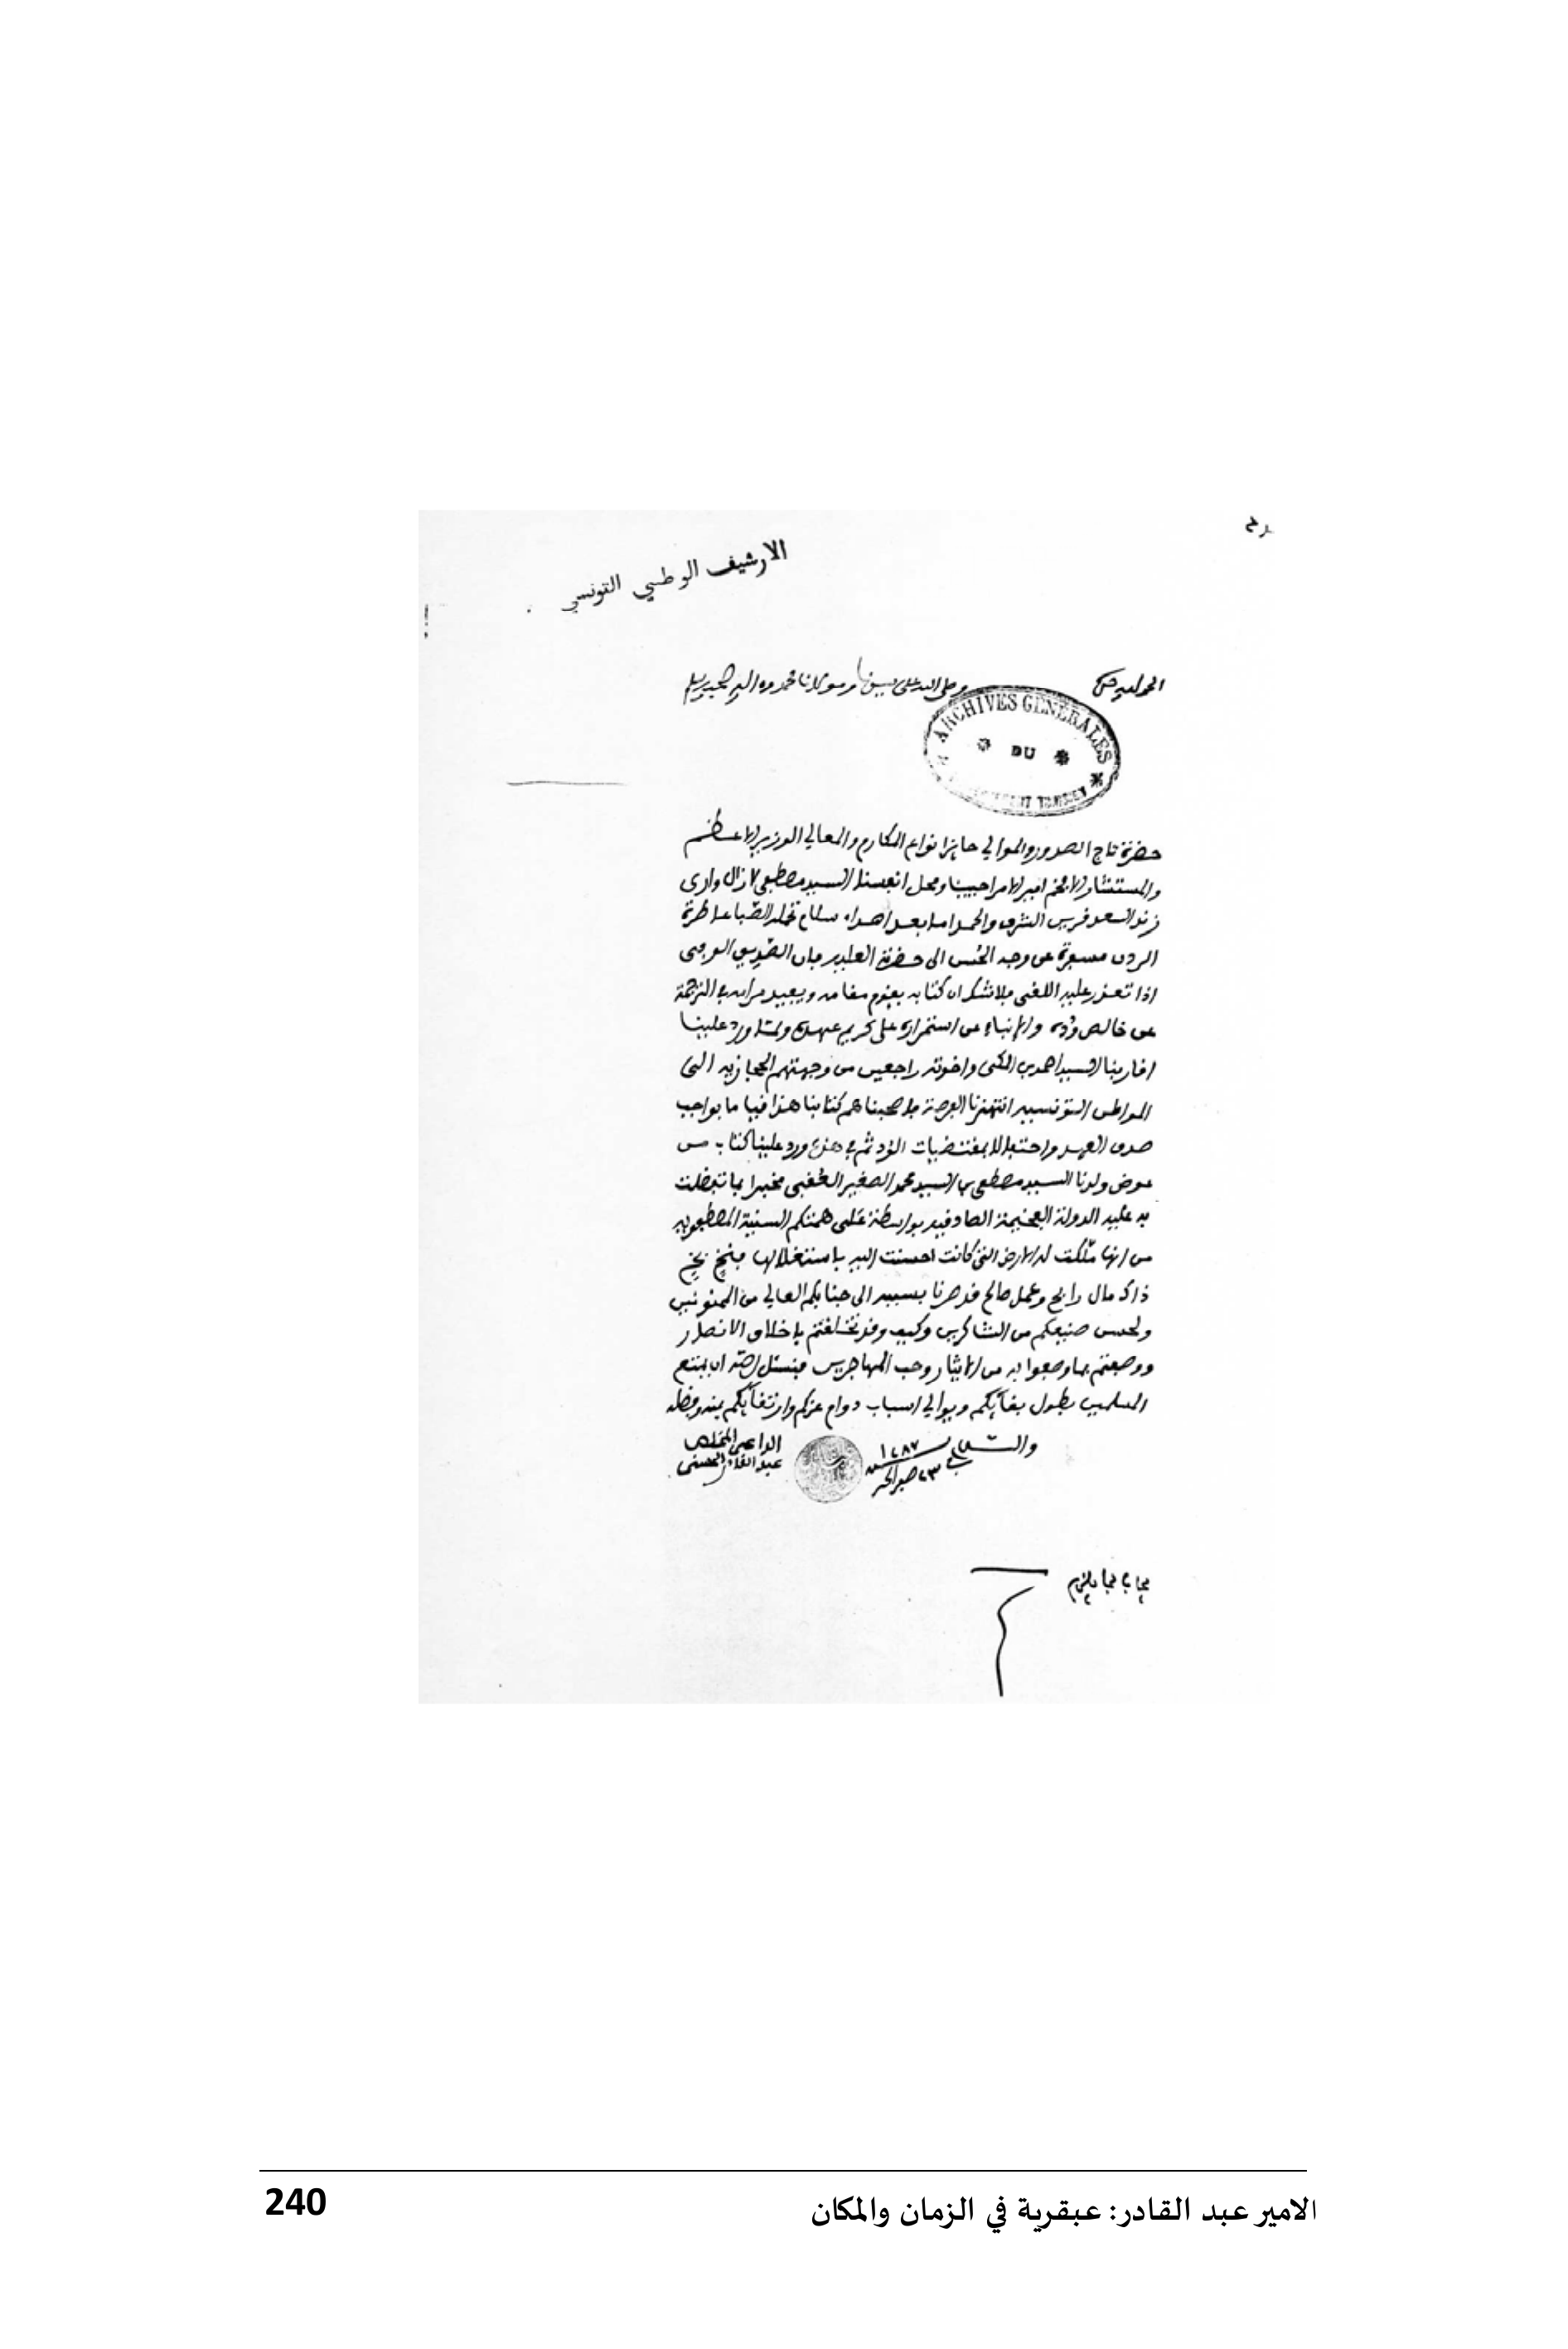 الارشيف الوطني التونسي
الحمد لله حق وصلى الله على سيدنا ومولانا محمد وءاله وصحبه وسلم
ARCHIVES GENERALES
DU
حضرة تاج الصدور والموالي حايز انواع المكارم والمعالي الوزير الاعظم
والمستشار الافخم امير الامرا حبيبنا ومحل انفسنا السيد مصطفى لا زال وارى
زند السعد قرين الشرف والحمد اما بعد اهداء سلام تخلد الصبا عاطرة
الردن مسفرة عن وجه الحسن الى حضرة العلية فان الصديق الوفى
اذا تعذر عليه اللقى فلا شك ان كتابه يقوم مقامه ويفيد مرامه في الترجمة
عن خالص وده والانباء عن استمراره على كريم عهده ولما ورد علينا
اقاربنا السيد احمد بن المكى واخوته راجعين من وجهتهم الحجازية الى
المواطن التونسية انتهزنا الفرصة فاصحبناهم كتابنا هذا قياما بواجب
صدق العهد واحتفالا بمقتضيات الود ثم في هذه ورد علينا كتاب من
عوض ولدنا السيد مصطفى بن السيد محمد الصغير العقبى مخبرا بما تفضلت
به عليه الدولة الفخيمة الصادقية بواسطة على همتكم السنية المصطفوية
من انها ملكت له الارض التى كانت احسنت اليه باستغلالها فبخ بخ
ذاك مال رابح وعمل صالح قد صرنا بسببه الى جنابكم العالي من الممنونين
ولحسن صنيعكم من الشاكرين وكيف وقد تخلقتم باخلاق الانصار
ووصفتم بما وصفوا به من الايثار وحب المهاجرين فنسئل الله ان يمتع
المسلمين بطول بقائكم ويوالي اسباب دوام عزكم وارتقائكم بمنه وفضله
والسلام في ٢٣ صفر الخير سنة ١٢٨٧
الداعي المخلص
عبد القادر الحسنى
يجاب بما يلزم
240
الامير عبد القادر: عبقرية في الزمان والمكان